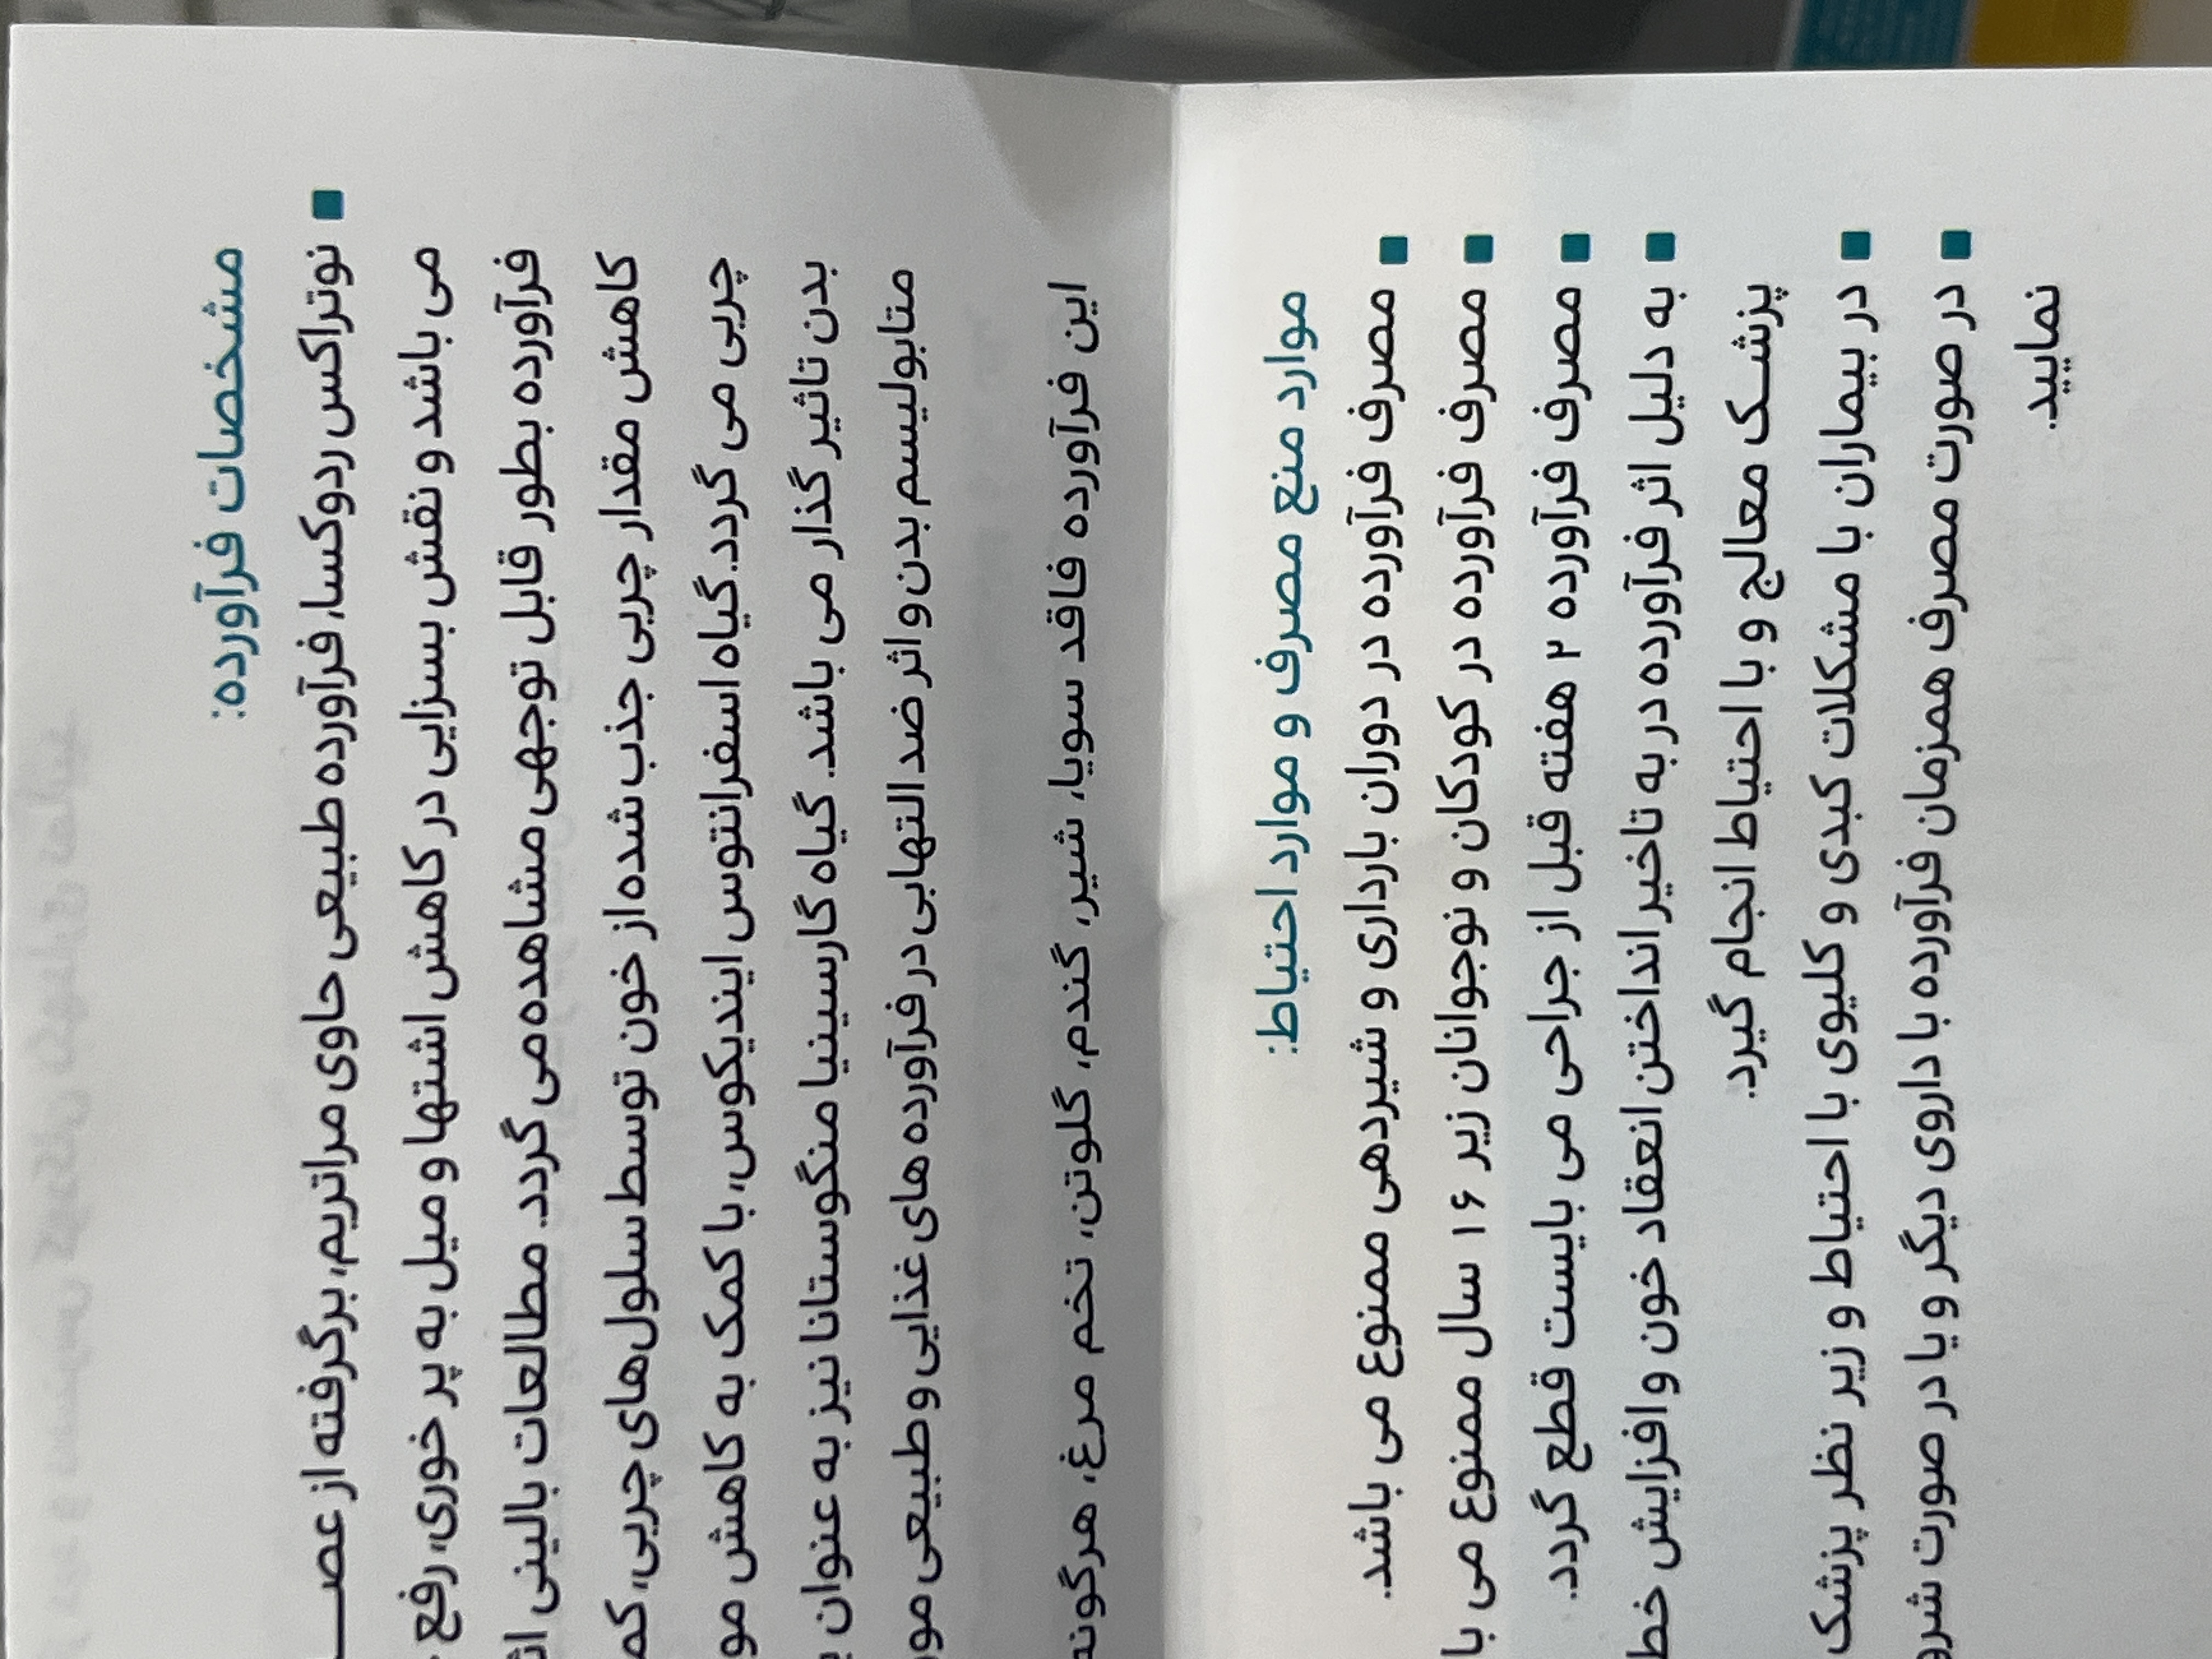 مشخصات فرآورده:
■ نوتراکس ردوکسا، فرآورده طبیعی حاوی مراتریم، برگرفته از
می باشد و نقش بسزایی در کاهش اشتها و میل به پر خوری، رفع
فرآورده بطور قابل توجهی مشاهده می گردد. مطالعات بالینی
کاهش مقدار چربی جذب شده از خون توسط سلول‌های چربی،
چربی می گردد. گیاه اسفرانتوس ایندیکوس، با کمک به کاهش
بدن تاثیر گذار می باشد. گیاه گارسینیا منگوستانا نیز به عنوان
متابولیسم بدن و اثر ضد التهابی در فرآورده های غذایی و طبیعی
این فرآورده فاقد سویا، شیر، گندم، گلوتن، تخم مرغ، هرگونه
موارد منع مصرف و موارد احتیاط:
■ مصرف فرآورده در دوران بارداری و شیردهی ممنوع می باشد.
■ مصرف فرآورده در کودکان و نوجوانان زیر ۱۶ سال ممنوع می
■ مصرف فرآورده ۲ هفته قبل از جراحی می بایست قطع گردد.
■ به دلیل اثر فرآورده در به تاخیر انداختن انعقاد خون و افزایش
پزشک معالج و با احتیاط انجام گیرد.
■ در بیماران با مشکلات کبدی و کلیوی با احتیاط و زیر نظر پزشک
■ در صورت مصرف همزمان فرآورده با داروی دیگر و یا در صورت
نمایید.